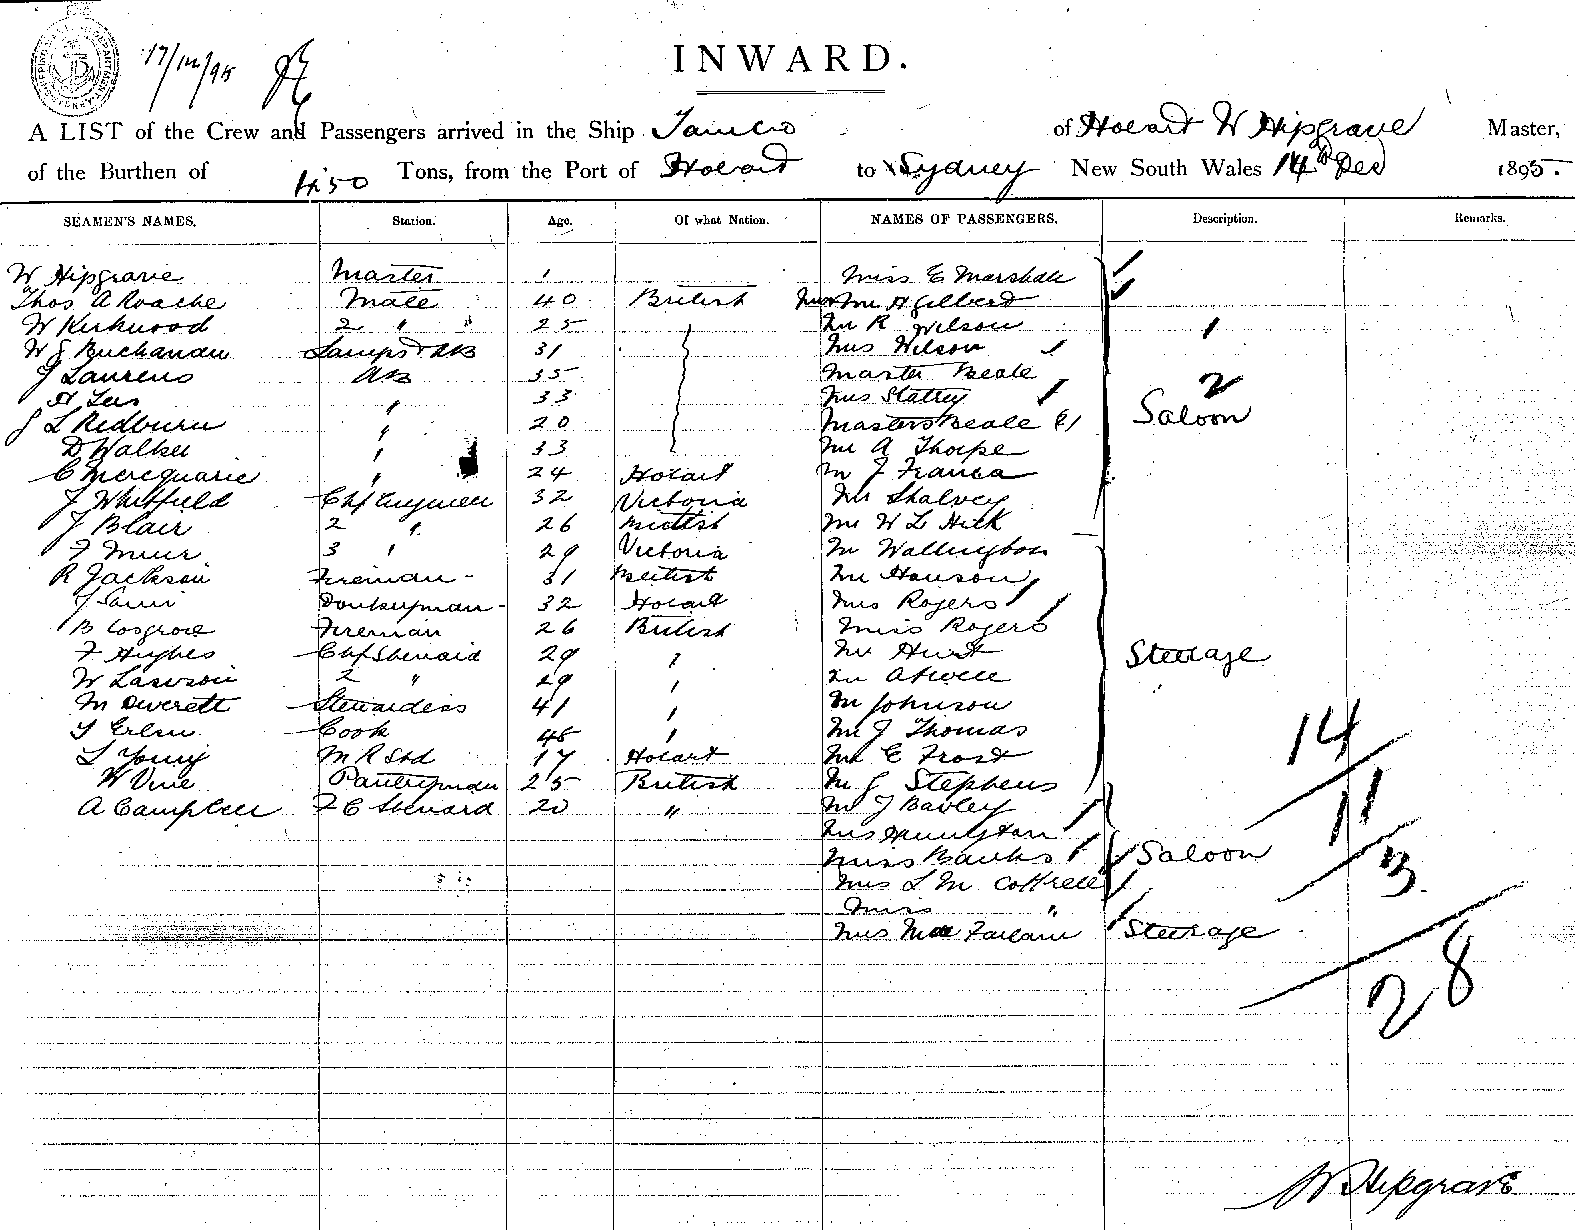 17/12/95
INWARD.
A LIST of the Crew and Passengers arrived in the Ship of Hobart W Hipgrave Master,
of the Burthen of 450 Tons, from the Port of Hobart to Sydney New South Wales 14th Dec 1895.
SEAMEN'S NAMES. Station. Age. Of what Nation. NAMES OF PASSENGERS. Description. Remarks.
W Hipgrave Master 1 Miss E Marshall
Thos A Roache Mate 40 British Mr H Gilbert
W Kirkwood 2 " 25 Mr R Wilson 1
W J Buchanan Lamps & AB 31 Mrs Wilson
J Laurens AB 35 Master Beale 2
H Lee " 33 Mrs Slattery
J L Redburn " 20 Masters Beale Saloon
D Walker " 33 Mr A Thorpe
C " 24 Hobart Mr J Franca
J Whitfield Chf Engineer 32 Victoria Mr Shalvey
J Blair 2 " 26 British Mr W L Hick
F Muir 3 " 29 Victoria Mr Wallington
R Jackson Fireman - 31 British Mr Hanson
J Donkeyman - 32 Hobart Mrs Rogers
B Cosgrove Fireman 26 British Miss Rogers
F Hughes Chf Steward 29 " Mr Hurst Steerage
W Lawson 2 " 29 " Mr Atwell
M Deverett Stewardess 41 " Mr Johnson
Cook 45 " Mr J Thomas 14
L Young M R Std 17 Hobart Mr E Frost
W Vine Pantryman 25 British Mr G Stephens 11
A Campbell F C Steward 20 " Mr J Bayley
Mrs Hannigton
Miss Banks Saloon 3
Mrs L M Cottrell
Miss "
Mrs Farlane Steerage
28
W Hipgrave